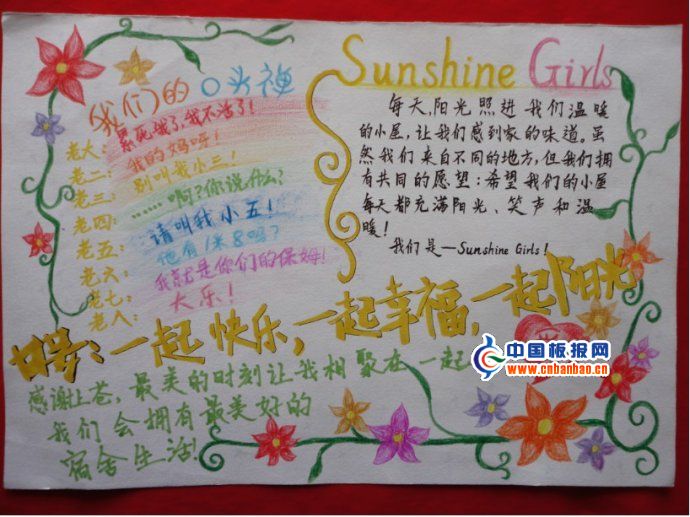 我们的口头禅
老大：累死俄了，我不活了！
老二：我的妈呀！
老三：别叫我小三！
老四：……啊？你说什么？
老五：请叫我小五！
老六：他有1米8吗？
老七：我就是你们的保姆！
老八：大乐！
Sunshine Girls
每天，阳光照进我们温暖
的小屋，让我们感到家的味道。虽
然我们来自不同的地方，但我们拥
有共同的愿望：希望我们的小屋
每天都充满阳光、笑声和温
暖！
我们是—Sunshine Girls！
口号：一起快乐，一起幸福，一起阳光
感谢上苍，最美的时刻让我相聚在一起
我们会拥有最美好的
宿舍生活！
中国板报网
www.cnbanbao.cn